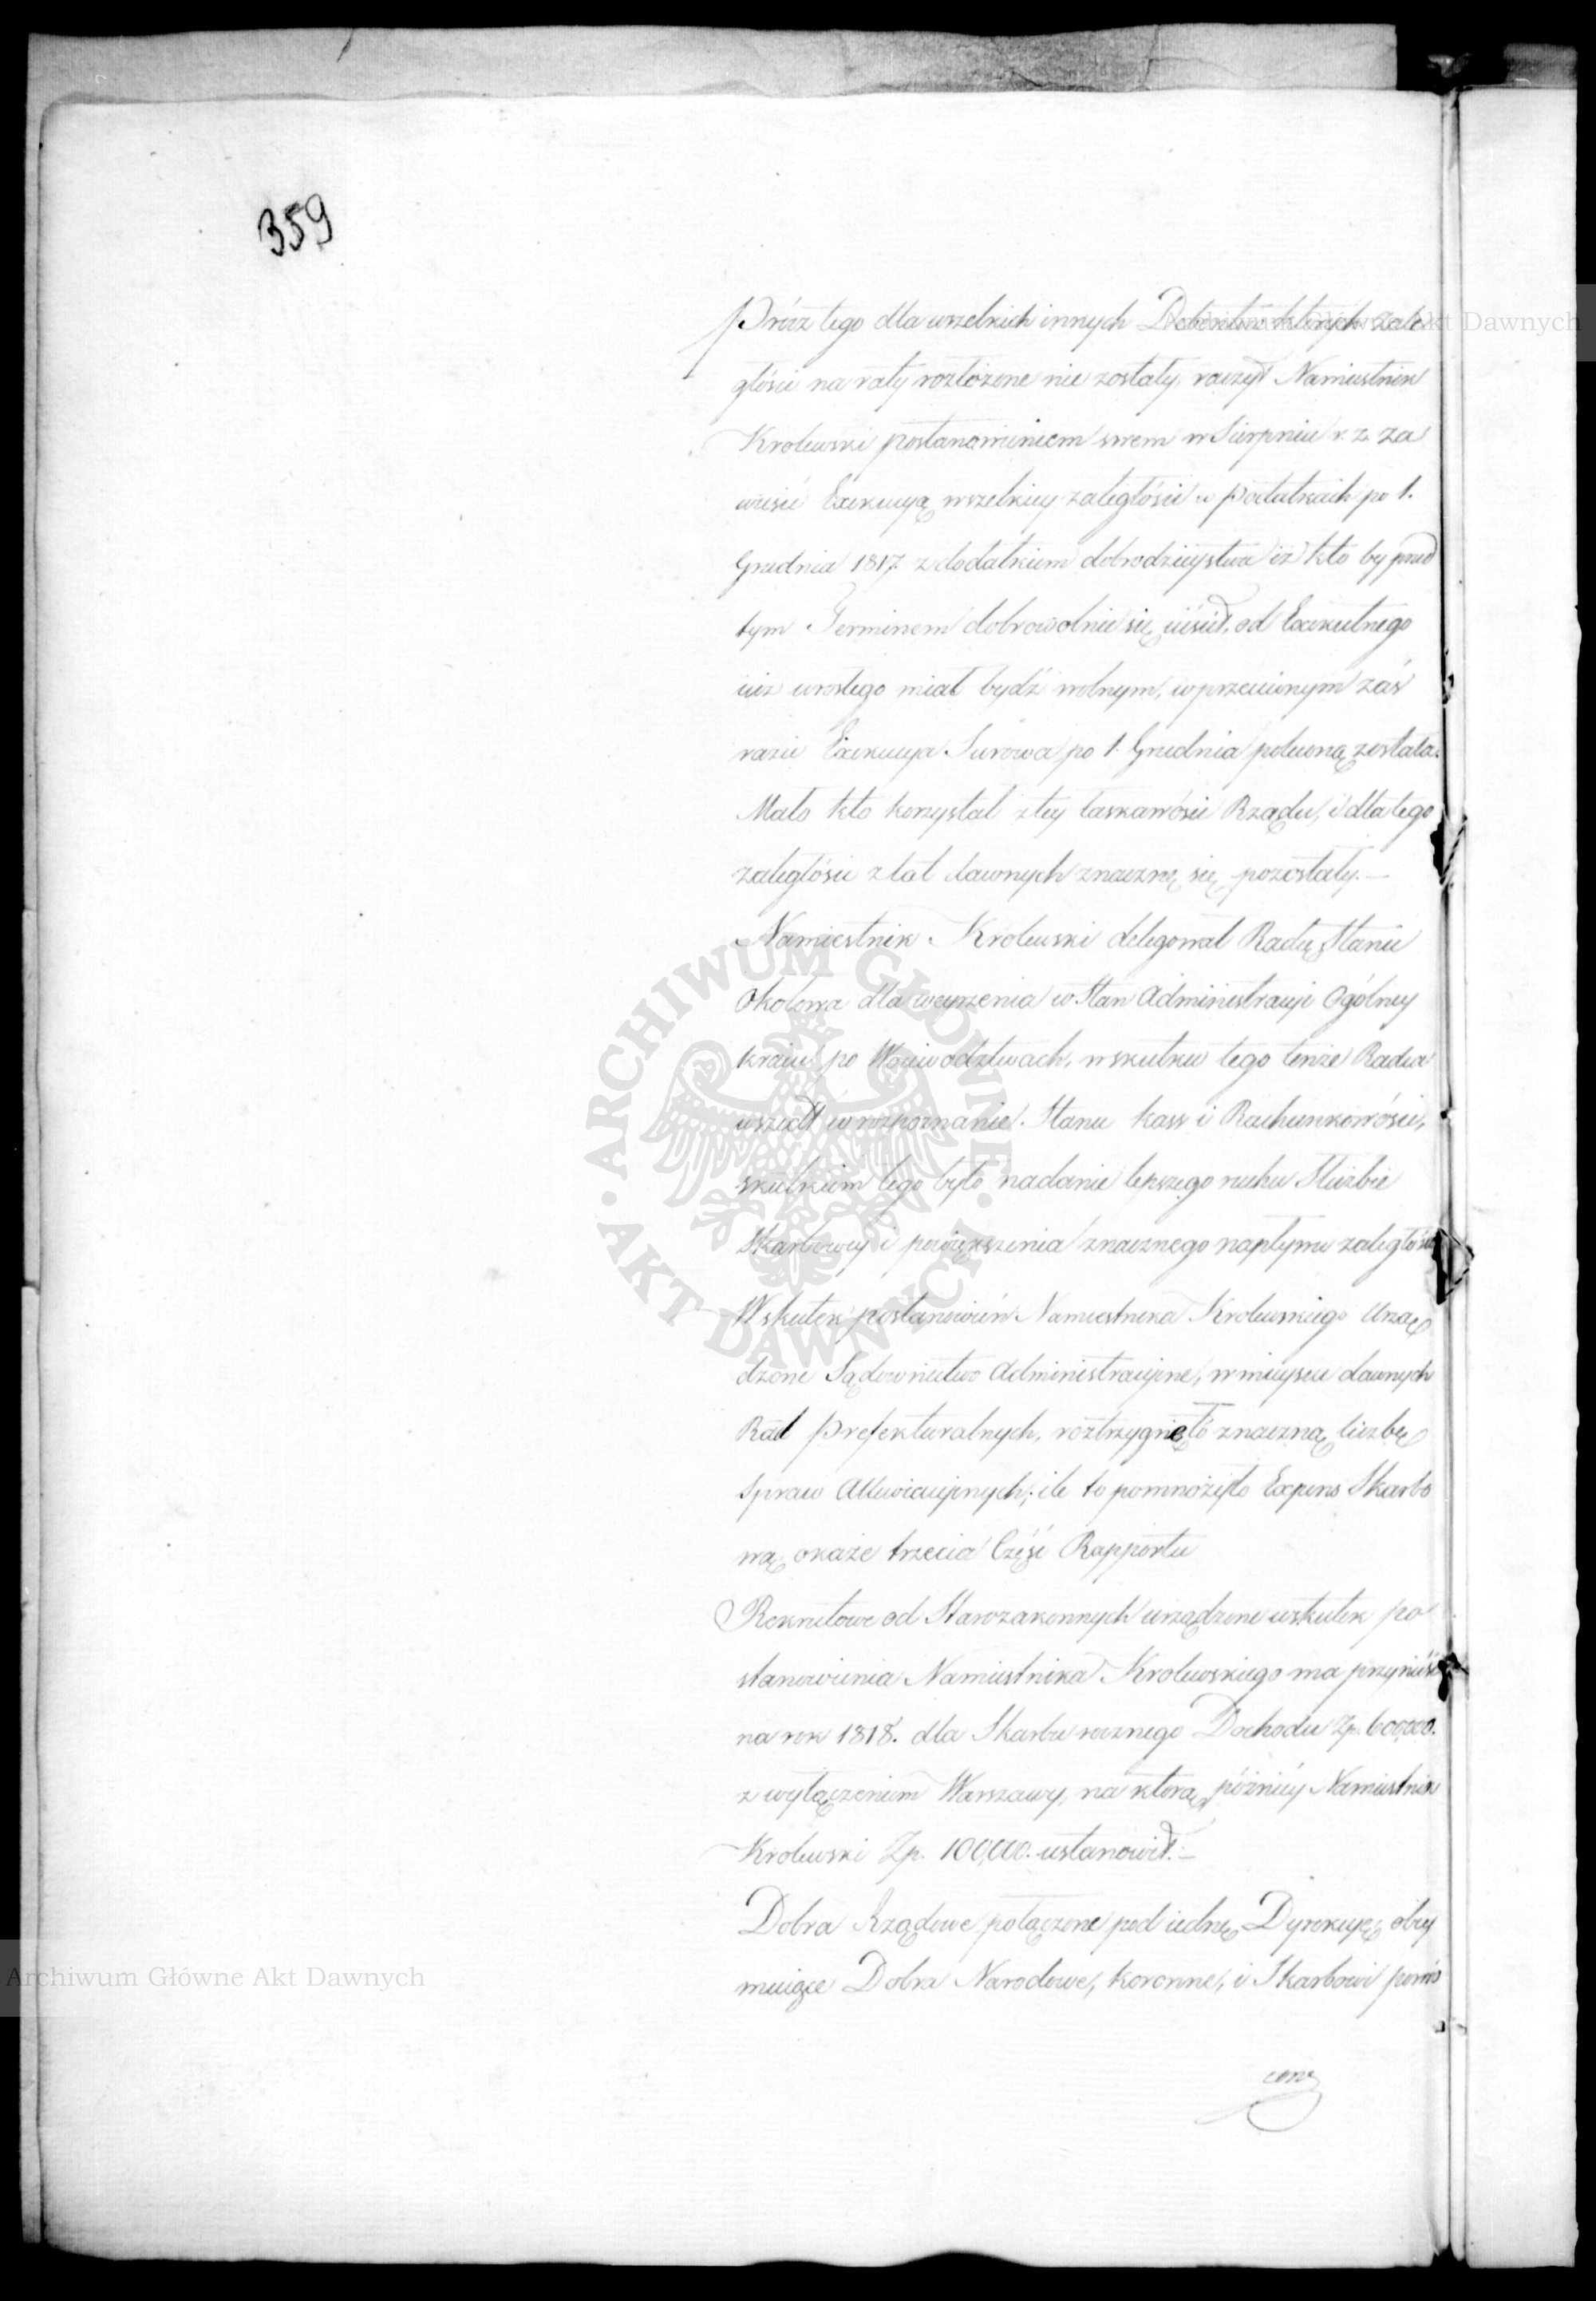 359
Prócz tego dla wszelkich innych Debentów których zale
głości na raty rozłożone nie zostały, raczył Namiestnik
Krolewski postanowieniem swem w Sierpniu r. z. za
wiesić Exekucyą wszelkiey zaległości w podatkach po 1.
Grudnia 1817 z dodatkiem dobrodzieystwa iż kto by przed
tym Terminem dobrowolnie się uiścił, od Exekutnego
iuż urosłego miał bydź wolnym, w przeciwnym zaś
razie Exekucya Surowa po 1. Grudnia poleconą została.
Mało kto korzystał z tey łaskawości Rządu, i dla tego
zaległości z lat dawnych znaczne się pozostały.—
Namiestnik Krolewski delegował Radcę Stanu
Okołowa dla weyrzenia w Stan Administracyi Ogólney
kraiu po Woiewodztwach, w skutku tego tenże Radca
wszedł w rozpoznanie Stanu kass i Rachunkowości,
skutkiem tego było nadanie lepszego ruchu Służbie
Skarbowey i powiększenia znacznego napływu zaległości
W skutek postanowień Namiestnika Krolewskiego Urzą
dzone Sądownictwo Administracyine, w mieyscu dawnych
Rad Prefekturalnych, roztrzygnęło znaczną liczbę
Spraw Allewiacyinych; ile to pomnożyło Expens Skarbo
wą, okaże trzecia Część Rapportu
Rekrutowe od Starozakonnych urządzone wskutek po
stanowienia Namiestnika Krolewskiego ma przynieść
na rok 1818. dla Skarbu rocznego Dochodu Zp. 600,000.
z wyłączeniem Warszawy, na ktorą późniéy Namiestnik
Krolewski Zp. 100,000. ustanowił.—
Dobra Rządowe połączone pod iednę Dyrekcyę obey
muiące Dobra Narodowe, koronne, i Skarbowi powró
cone
Archiwum Główne Akt Dawnych
Archiwum Główne Akt Dawnych
· ARCHIWUM GŁÓWNE · AKT DAWNYCH